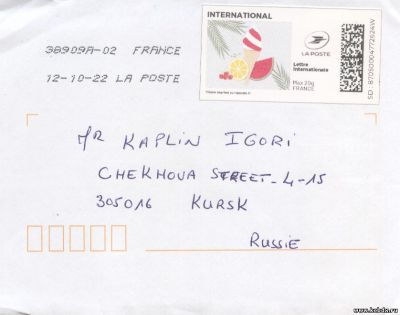 INTERNATIONAL
38909A-02 FRANCE
LA POSTE
Lettre
Internationale
12-10-22 LA POSTE
Max 20g
FRANCE
SD : 87050004772624W
MR KAPLIN IGORI
CHEKHOVA STREET_4-15
305016 KURSK
RUSSIE
www.kxbdx.ru